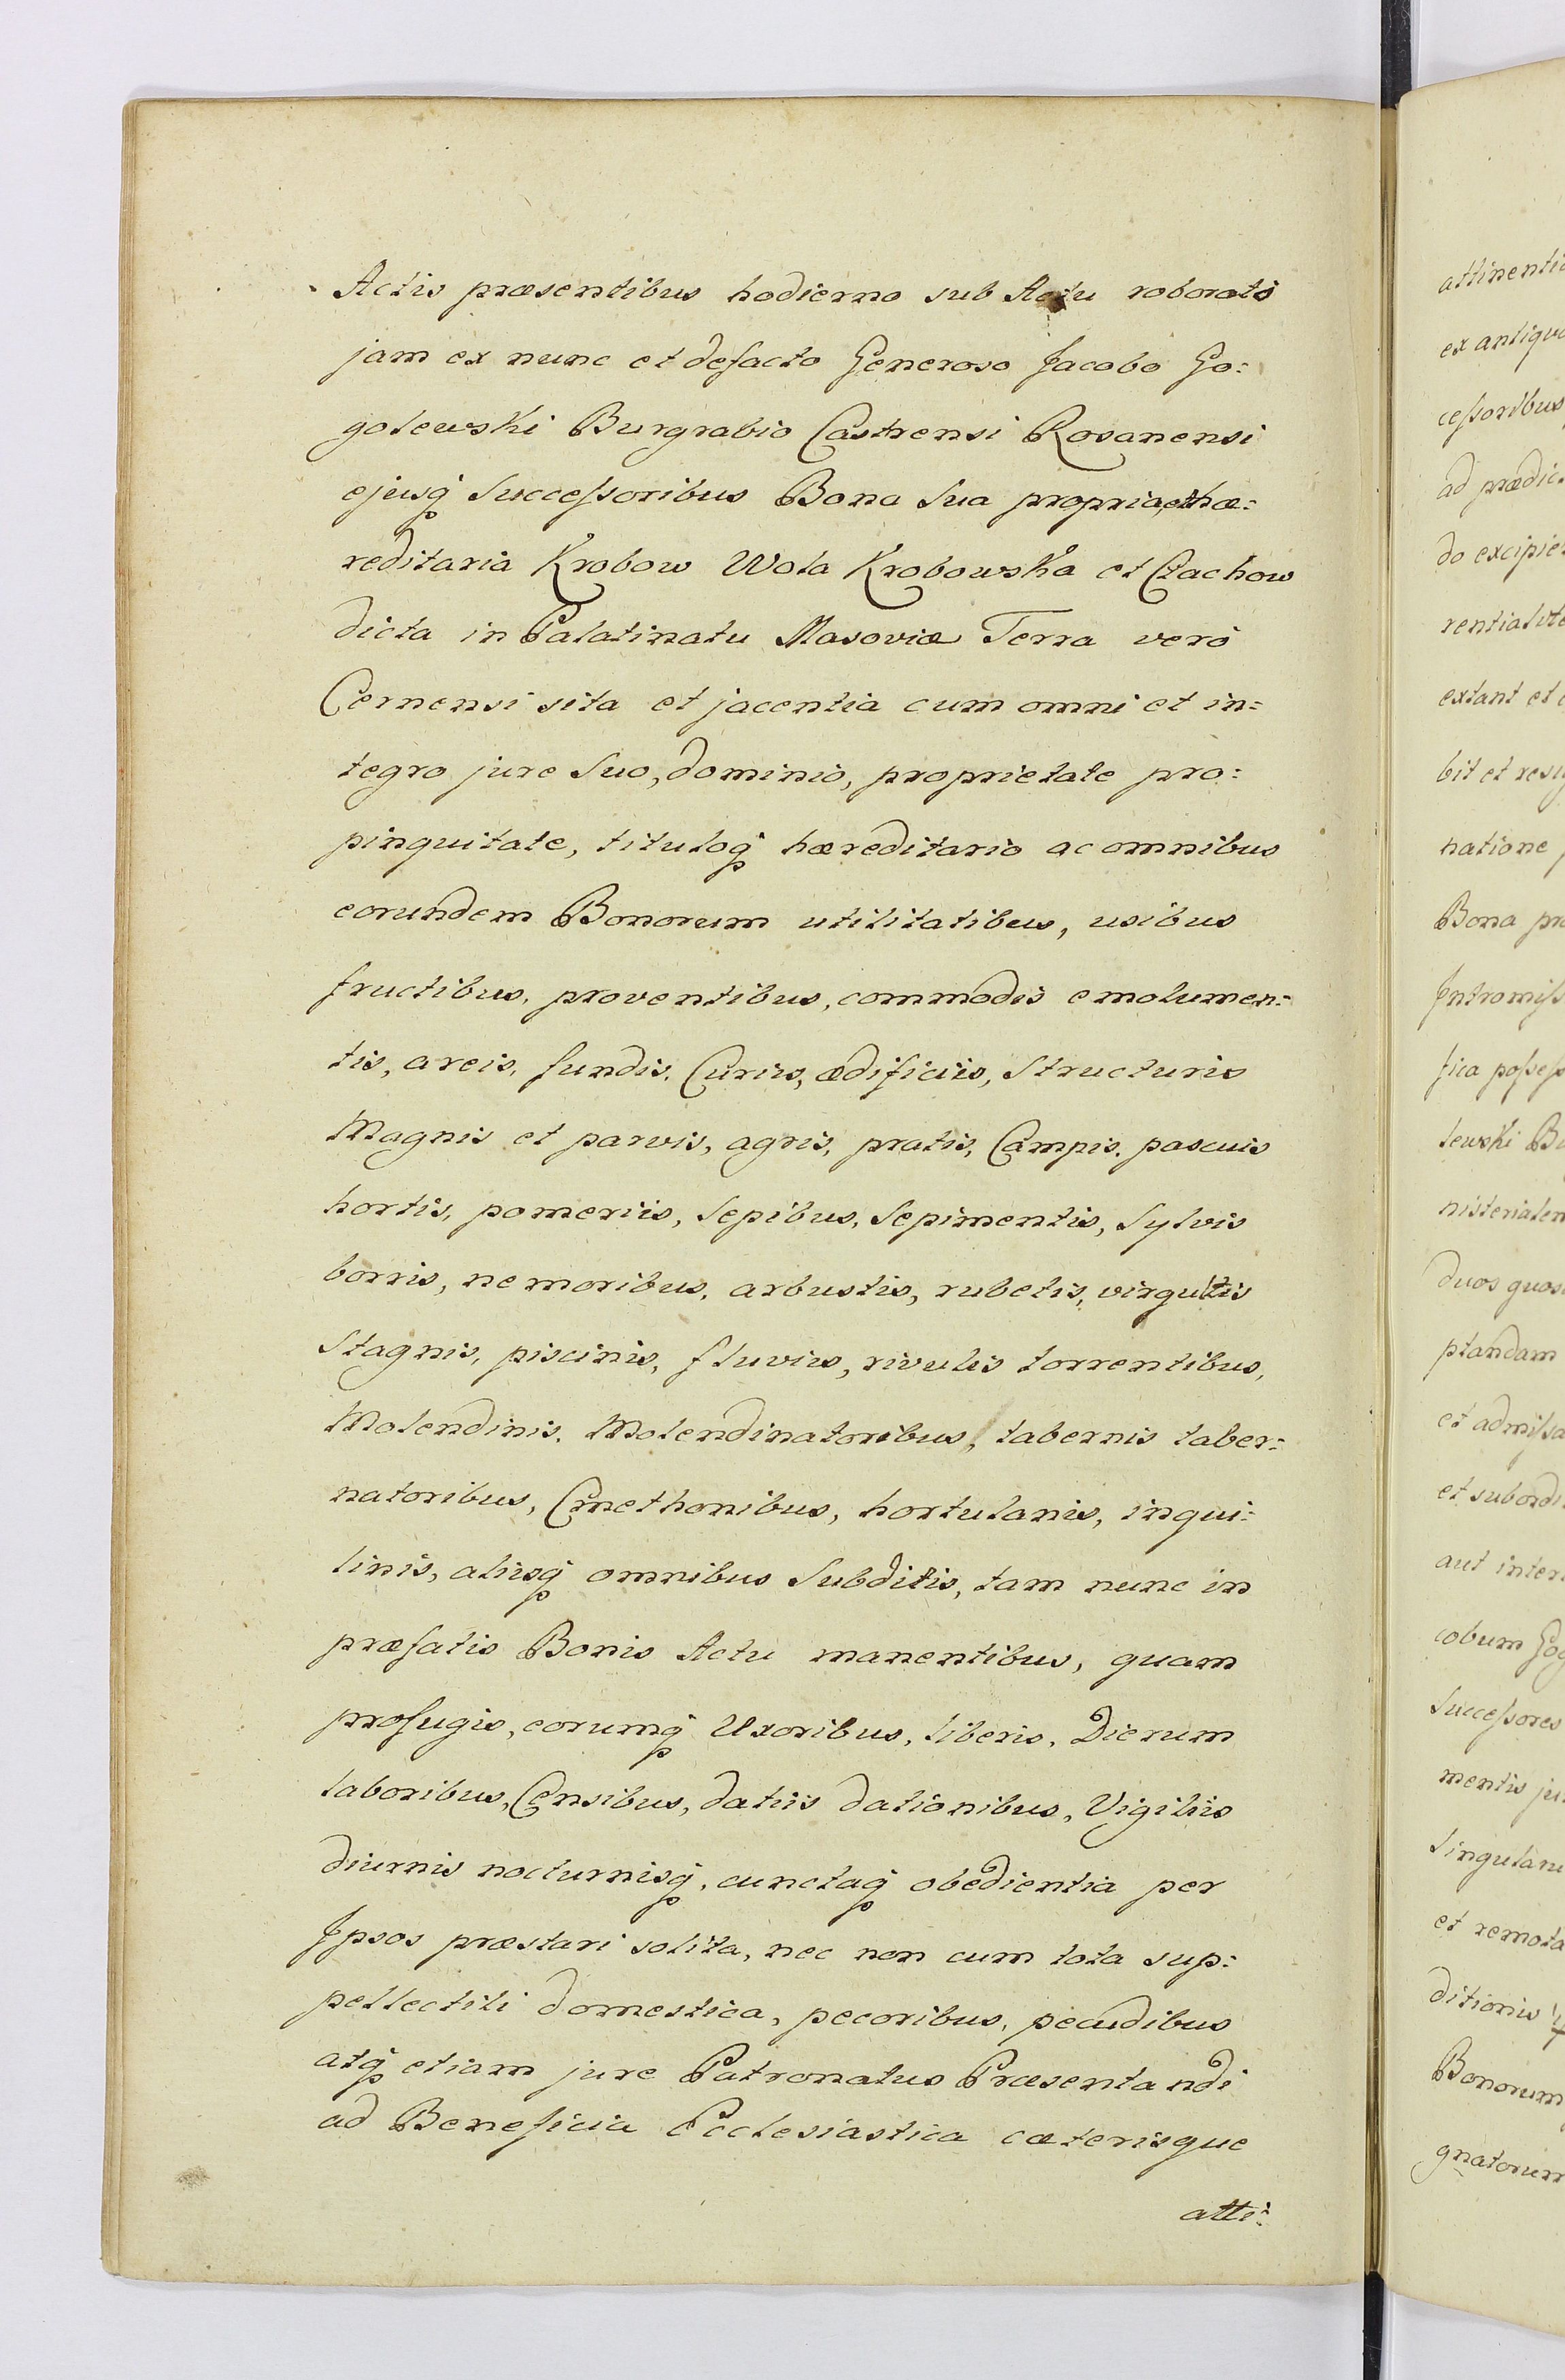 Actis præsentibus hodierno sub Actu roborato
jam ex nunc et defacto Generoso Jacobo Go=
golewski Burgrabio Castrensi Rosanensi
ejusq̃ Successoribus Bona Sua propria, et hæ=
reditaria Krobow Wola Krobowska et Czachow
dicta in Palatinatu Masoviæ Terra verò
Cernensi sita et jacentia cum omni et in=
tegro jure Suo, dominio, proprietate pro=
pinquitate, tituloq̃ hæreditario ac omnibus
eorundem Bonorum utilitatibus, usibus
fructibus, proventibus, commodis emolumen=
tis, areis, fundis, Curiis, ædificiis, Structuris
Magnis et parvis, agris, pratis, Campis, pascuis
hortis, pomeriis, Sepibus, Sepimentis, Sylvis
borris, nemoribus, arbustis, rubetis, virgultis
Stagnis, piscinis, fluviis, rivulis torrentibus,
Molendinis, Molendinatoribus, tabernis taber=
natoribus, Cmethonibus, hortulanis, inqui=
linis, aliisq̃ omnibus Subditis, tam nunc in
præfatis Bonis Actu manentibus, quam
profugis, eorumq̃ Uxoribus, liberis, Dierum
laboribus, Censibus, datiis dationibus, Vigiliis
diurnis nocturnisq̃, cunctaq̃ obedientia per
Ipsos præstari solita, nec non cum tota sup=
pellectili domestica, pecoribus, pecudibus
atq̃ etiam jure Patronatus Præsentandi
ad Beneficia Ecclesiastica cæterisque
atti=
attinenti
ex antiqu
cessoribus
ad prædic
do excipie
extant et
bit et resi
natione
Bona pr
Intromiss
fica posses
lewski Bu
nisterialem
duos quos
ptandam
et admissa
et subordi
aut inter
cobum Gog
Successores
mentis ju
Singulari
et remota
ditionis
Bonorum
gnatorum